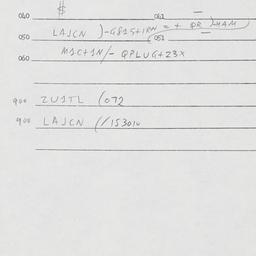 $
040 041 —
050 LAJCN )-G815+1RN = + QR )4AM
051 —
060 M1C+1N/- QPLUG+23X
900 ZU1TL (072
900 LAJCN (/153010